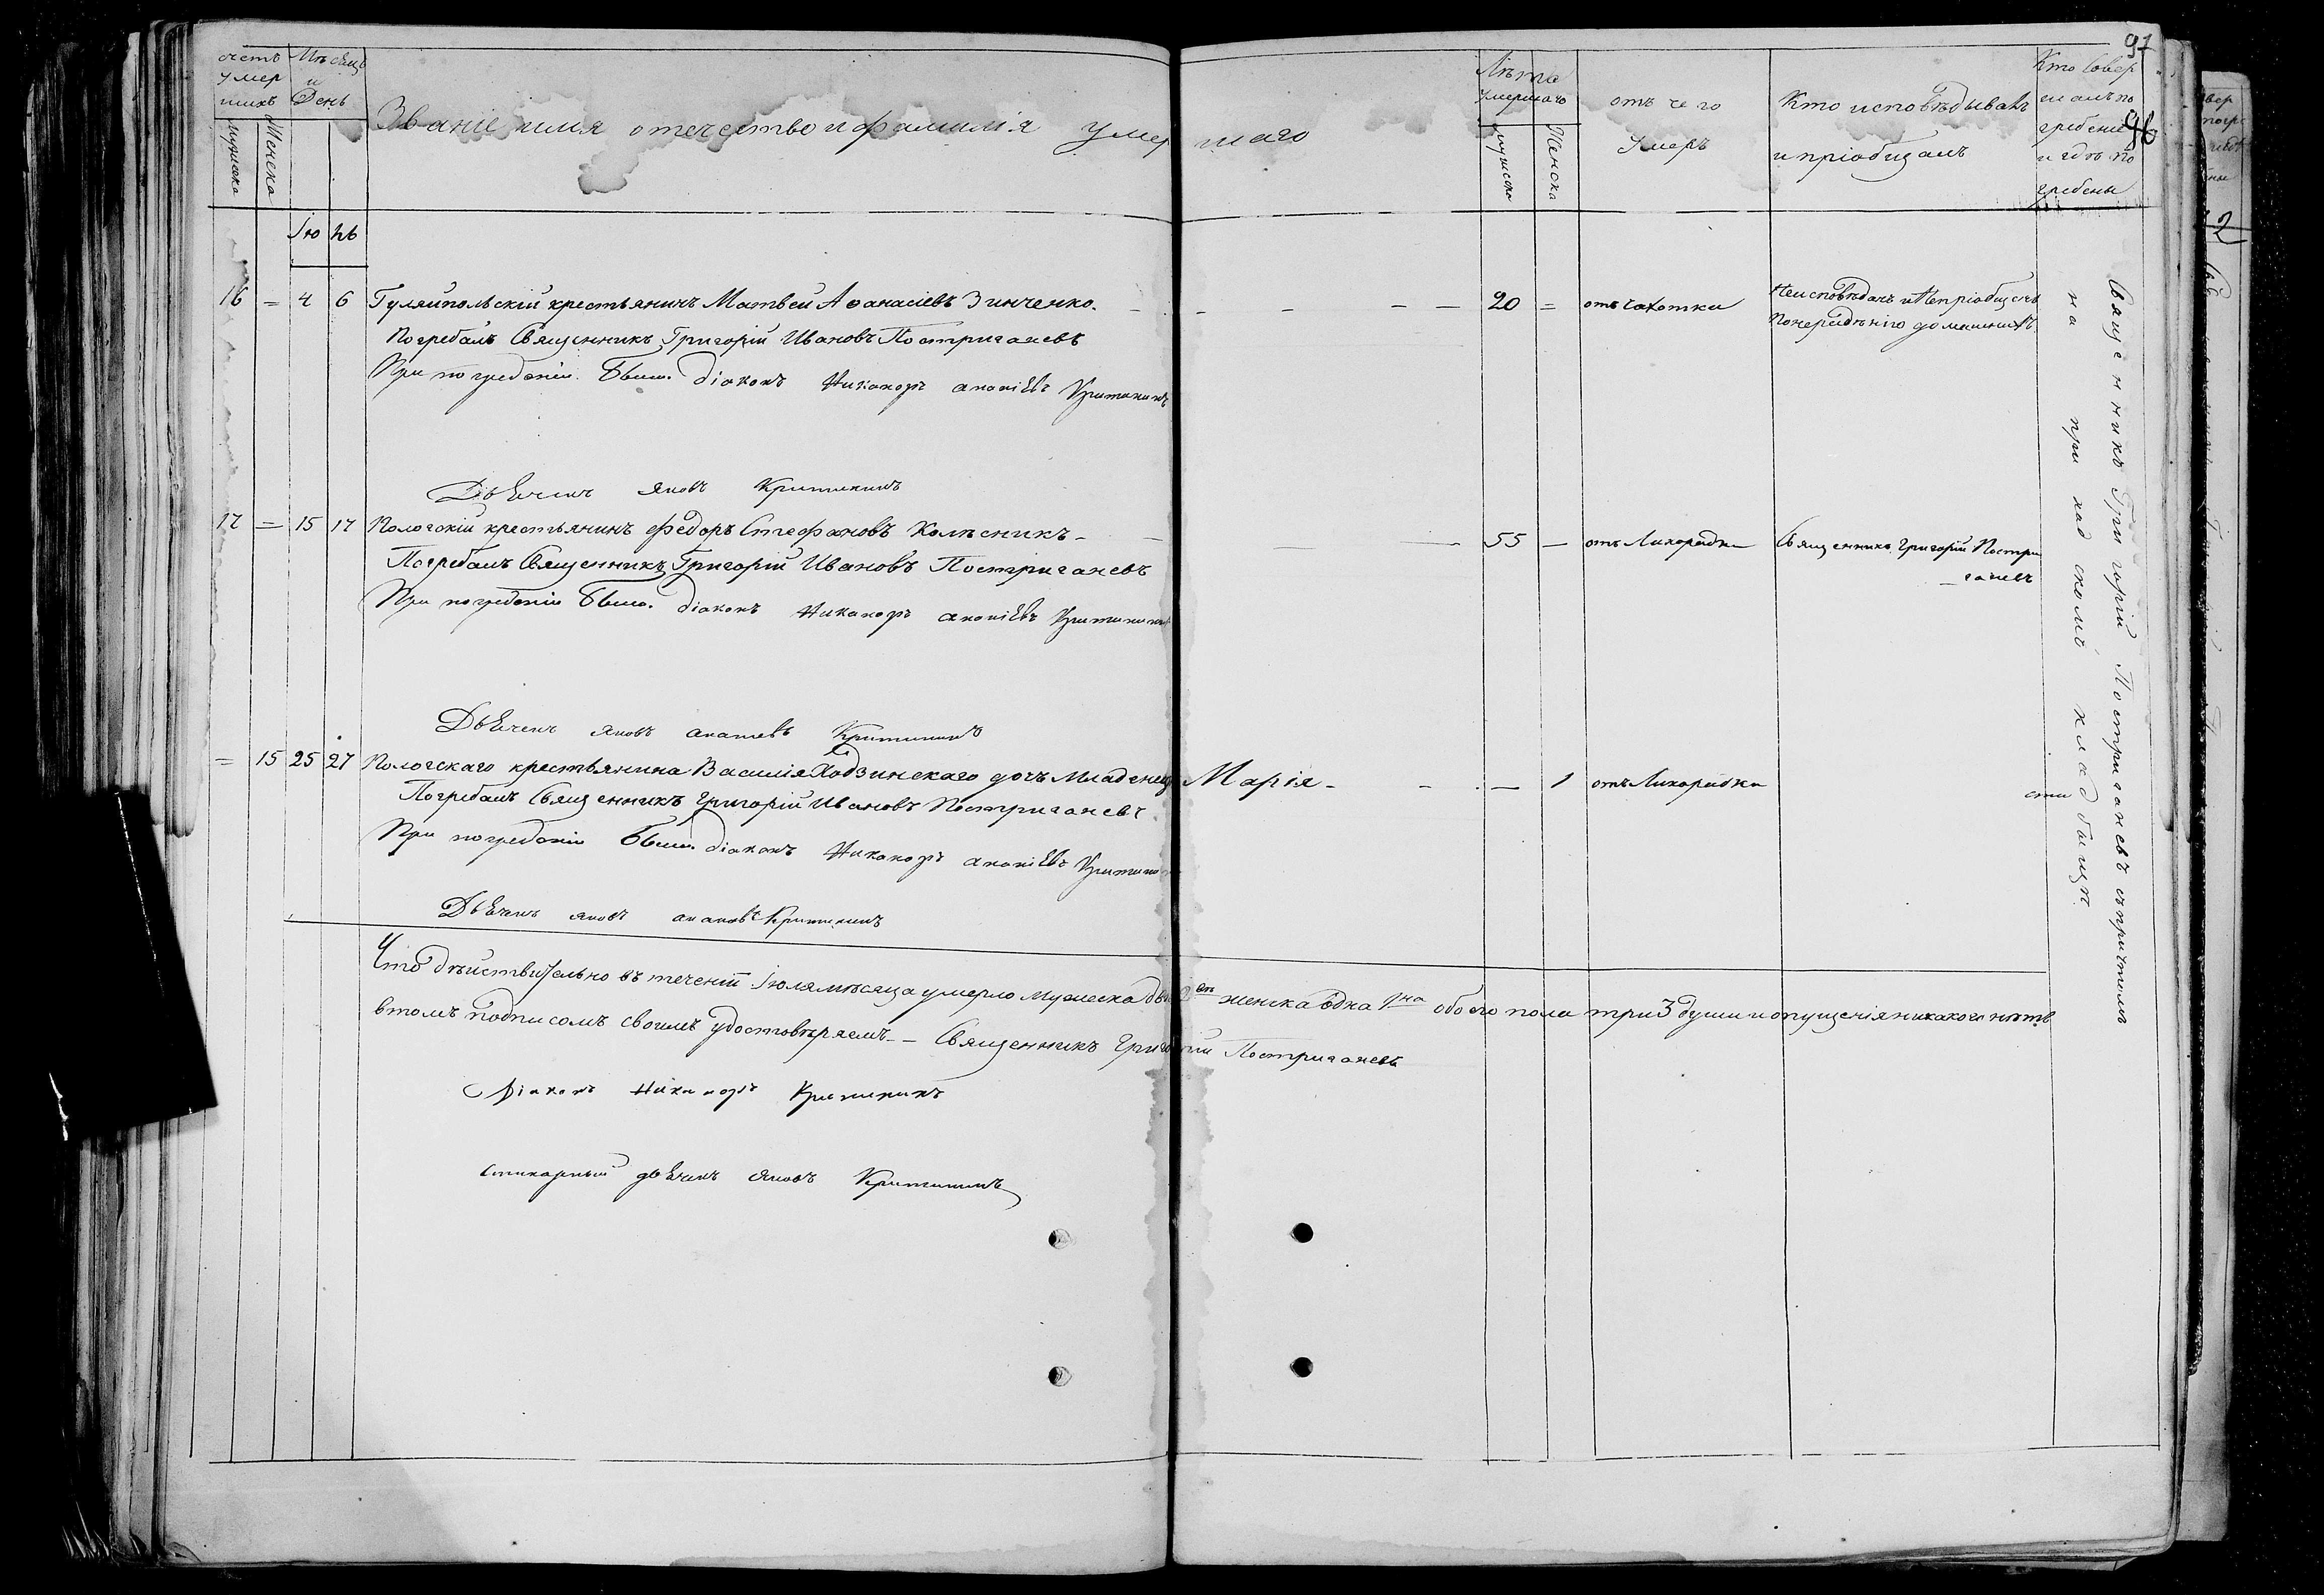 97
96
счетъ умершихъ
мужеска
Женска
Мѣсяцъ и День
Званіе имя отечество и фамилія умершаго
Лѣта умершаго
мужеска
Женска
отъ чего Умеръ
Кто исповѣдывалъ и пріобщалъ
Кто Совершалъ погребеніе и гдѣ погребены
Іюль
16 = 4 6 Гуляйпольскій крестьянинъ Матвей Аѳанасіевъ Зинченко. 20 = отъ чахотки Неисповѣданъ и Непріобщенъ
По нерадѣнію домашнихъ
Погребалъ Священникъ Григорій Ивановъ Постриганевъ
При погребеніи были. діаконъ Никаноръ
Дьячекъ Яковъ
17 = 15 17 Пологскій крестьянинъ Федоръ Стефановъ Колѣсникъ 55 — отъ Лихорадки Священникъ Григорій Постри
ганевъ
Погребалъ Священникъ Григорій Ивановъ Постриганевъ
При погребеніи были. діаконъ Никаноръ
Дьячекъ Яковъ
= 15 25 27 Пологскаго крестьянина Василія Ходзинскаго дочь Младенецъ Марія — 1 отъ Лихорадки
Погребалъ Священникъ Григорій Ивановъ Постриганевъ
При погребеніи были. діаконъ Никаноръ
Дьячекъ Яковъ
Священникъ Григорій Постриганевъ съ причтомъ
на приходскомъ кладбищѣ
Что дѣйствительно въ теченіи Іюля мѣсяца умерло мужеска два 2 женска одна 1на обоего пола три 3 души и опущенія никакого нѣтъ
втомъ подписомъ своимъ удостовѣряемъ — Священникъ Григорій Постриганевъ
Діаконъ Никаноръ
Стихарный дьячекъ Яковъ